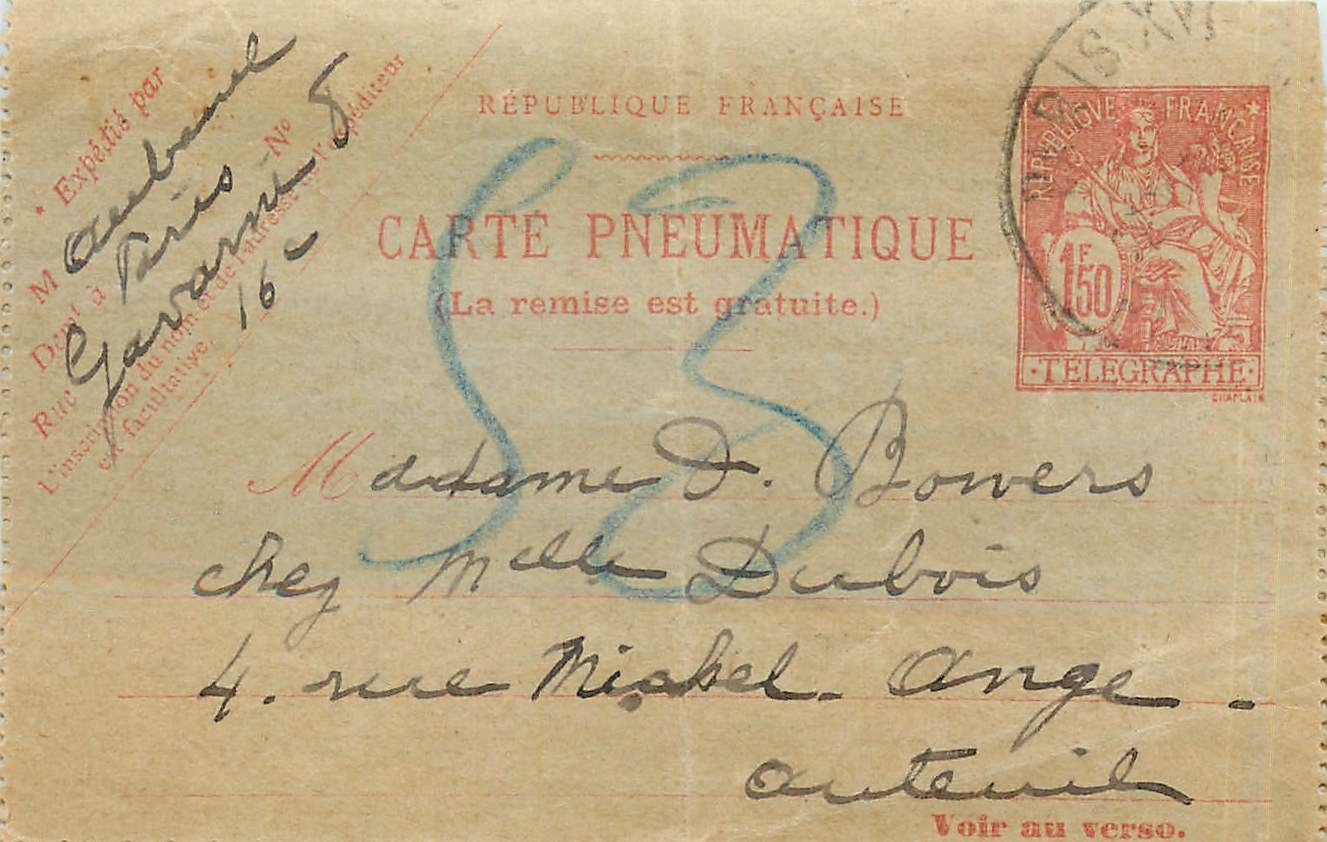 * Expédié par
M Aubanel
Demt à Paris
Rue Gavarni No 8
16e
L'inscription du nom et de l'adresse de l'expéditeur
est facultative.
RÉPUBLIQUE FRANÇAISE
CARTE PNEUMATIQUE
(La remise est gratuite.)
53
PARIS XVI
REPUBLIQUE FRANÇAISE
1F50
·TÉLÉGRAPHE·
CHAPLAIN
Madame J. Bowers
chez Melle Dubois
4. rue Michel-Ange -
Auteuil
Voir au verso.